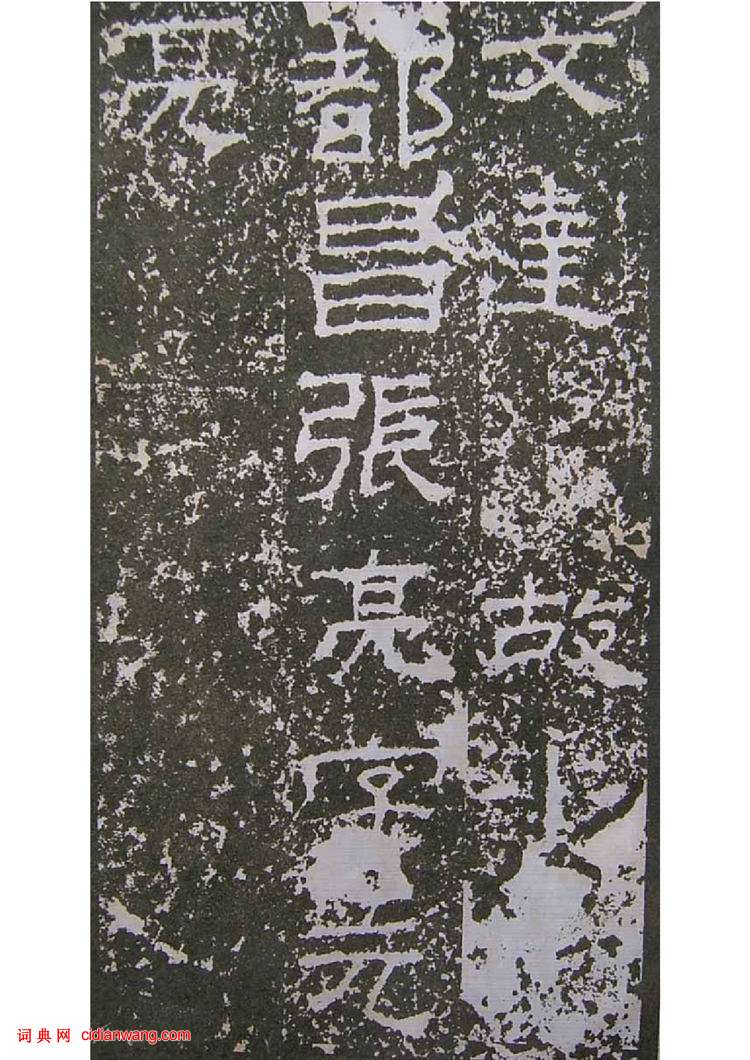 文達故小
都昌張亮字元
亮
词典网 cidianwang.com